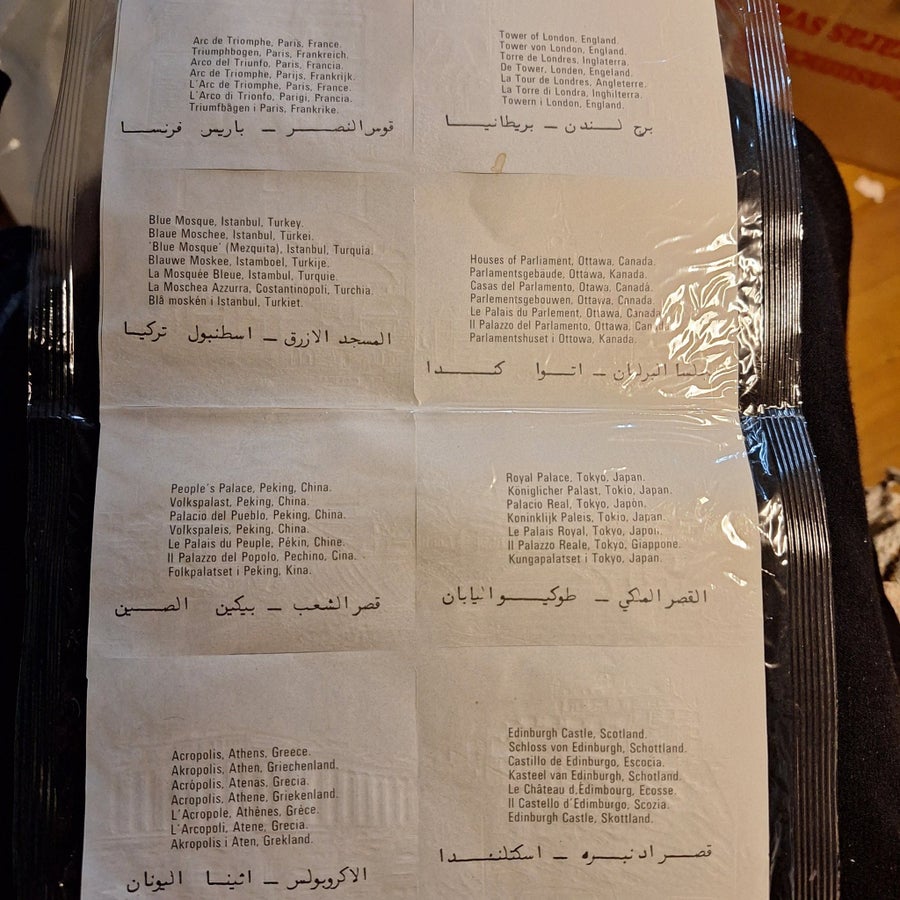 Arc de Triomphe, Paris, France.
Triumphbogen, Paris, Frankreich.
Arco del Triunfo, Paris, Francia.
Arc de Triomphe, Parijs, Frankrijk.
L'Arc de Triomphe, Paris, France.
L'Arco di Trionfo, Parigi, Francia.
Triumfbågen i Paris, Frankrike.
قوس النصر – باريس فرنسا
Tower of London, England.
Tower von London, England.
Torre de Londres, Inglaterra.
De Tower, Londen, Engeland.
La Tour de Londres, Angleterre.
La Torre di Londra, Inghilterra.
Towern i London, England.
برج لندن – بريطانيا
Blue Mosque, Istanbul, Turkey.
Blaue Moschee, Istanbul, Türkei.
'Blue Mosque' (Mezquita), Istanbul, Turquia.
Blauwe Moskee, Istamboel, Turkije.
La Mosquée Bleue, Istambul, Turquie.
La Moschea Azzurra, Costantinopoli, Turchia.
Blå moskén i Istanbul, Turkiet.
المسجد الازرق – اسطنبول تركيا
Houses of Parliament, Ottawa, Canada.
Parlamentsgebäude, Ottawa, Kanada.
Casas del Parlamento, Otawa, Canadá.
Parlementsgebouwen, Ottawa, Canada.
Le Palais du Parlement, Ottawa, Canada.
Il Palazzo del Parlamento, Ottawa, Canada.
Parlamentshuset i Ottowa, Kanada.
البرلمان – اتوا كندا
People's Palace, Peking, China.
Volkspalast, Peking, China.
Palacio del Pueblo, Peking, China.
Volkspaleis, Peking, China.
Le Palais du Peuple, Pékin, Chine.
Il Palazzo del Popolo, Pechino, Cina.
Folkpalatset i Peking, Kina.
قصر الشعب – بيكين الصين
Royal Palace, Tokyo, Japan.
Königlicher Palast, Tokio, Japan.
Palacio Real, Tokyo, Japòn.
Koninklijk Paleis, Tokio, Japan.
Le Palais Royal, Tokyo, Japon.
Il Palazzo Reale, Tokyo, Giappone.
Kungapalatset i Tokyo, Japan.
القصر الملكي – طوكيو اليابان
Acropolis, Athens, Greece.
Akropolis, Athen, Griechenland.
Acrópolis, Atenas, Grecia.
Acropolis, Athene, Griekenland.
L'Acropole, Athènes, Grèce.
L'Arcopoli, Atene, Grecia.
Akropolis i Aten, Grekland.
الاكروبولس – اثينا اليونان
Edinburgh Castle, Scotland.
Schloss von Edinburgh, Schottland.
Castillo de Edinburgo, Escocia.
Kasteel van Edinburgh, Schotland.
Le Château d.Edimbourg, Ecosse.
Il Castello d'Edimburgo, Scozia.
Edinburgh Castle, Skottland.
قصر ادنبره – اسكتلندا